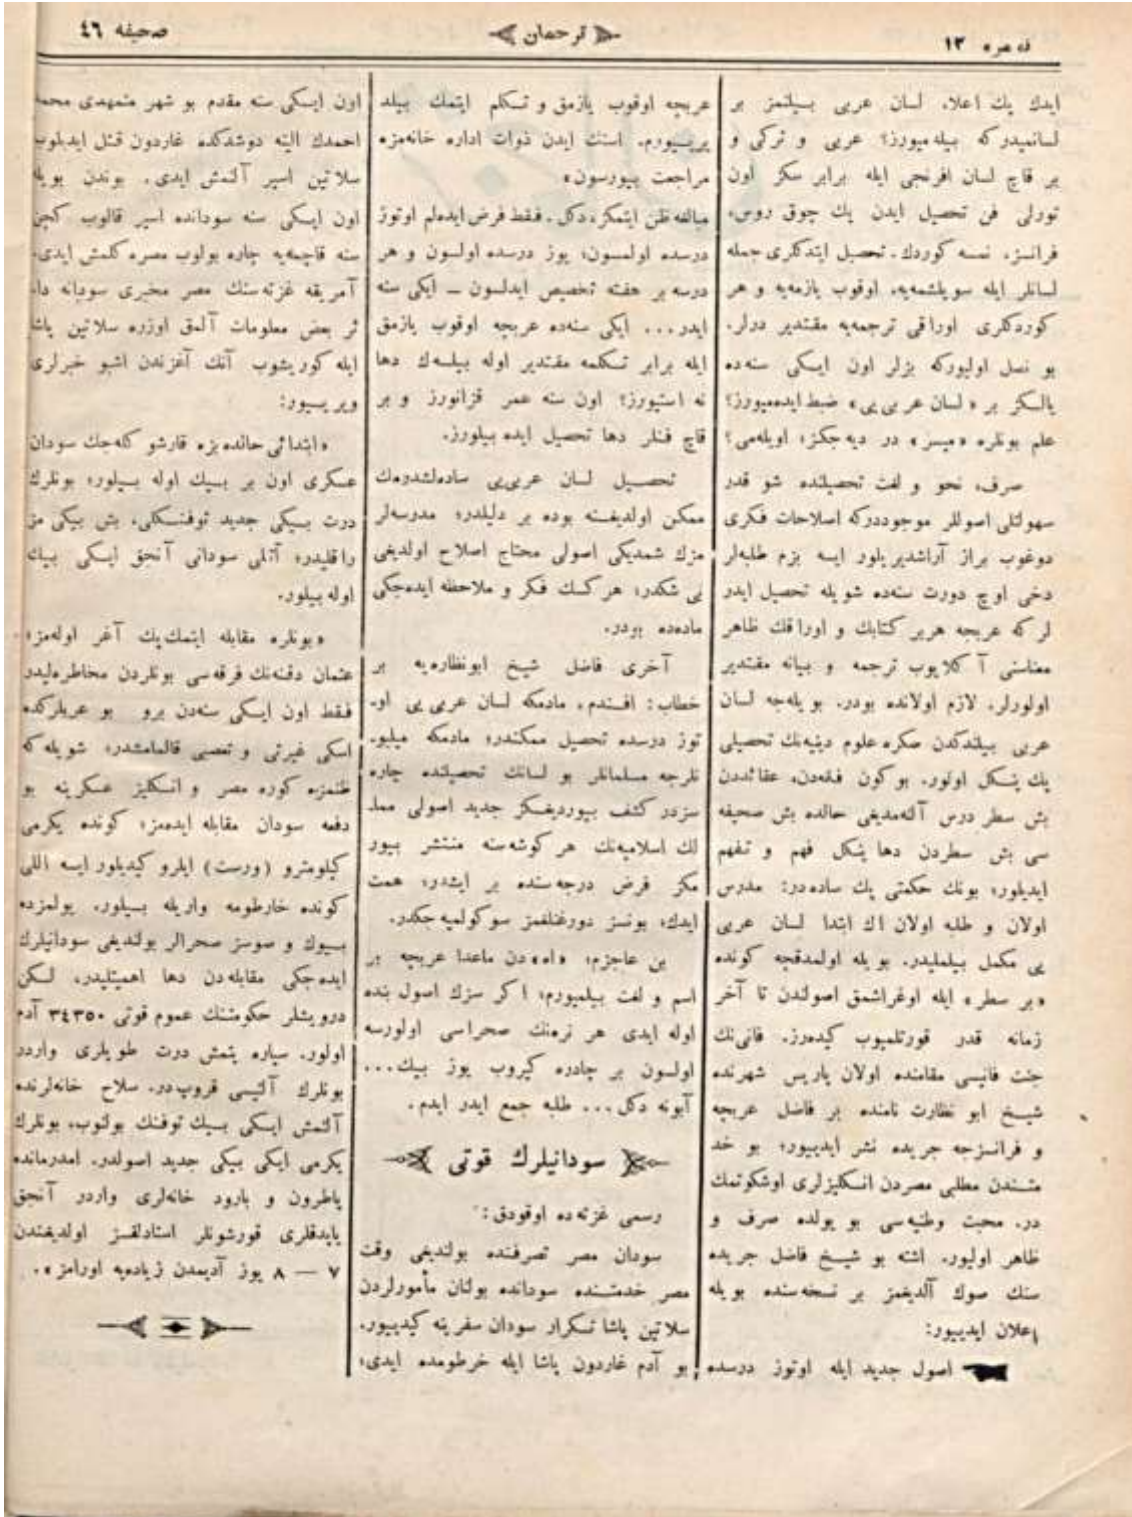 نومره ١٣
ترجمان
صحيفه ٤٦
ايدك پك اعلا. لسان عربى بيلنمز بر
لسانميدر كه بيله ميورز؟ عربى و تركى و
بر قاچ لسان افرنجى ايله برابر سكز اون
تورلى فن تحصيل ايدن پك چوق روس،
فرانسز، نمسه كوردك. تحصيل ايتدكلرى جمله
لسانلر ايله سويلشمه‌يه، اوقوب يازمه‌يه و هر
كوردكلرى اوراقى ترجمه‌يه مقتدير درلر.
بو نصل اوليوركه بزلر اون ايكى سنه‌ده
يالكز بر «لسان عربى يى» ضبط ايده‌ميورز؟
علم بونلره «ميسز» در ديه جكز؛ اويله‌مى؟
صرف، نحو و لغت تحصيلنده شو قدر
سهولتلى اصوللر موجوددركه اصلاحات فكرى
دوغوب براز آراشديريلور ايسه بزم طلبه‌لر
دخى اوچ دورت سنه‌ده شويله تحصيل ايدر
لر كه عربجه هربر كتابك و اوراقك ظاهر
معناسنى آكلايوب ترجمه و بيانه مقتدير
اولورلر. لازم اولانده بودر. بويله‌جه لسان
عربى بيلندكدن صكره علوم دينيه‌نك تحصيلى
پك يتكل اولور. بوكون فقه‌دن، عقائددن
بش سطر درس آلنمديغى حالده بش صحيفه
سى بش سطردن دها يتكل فهم و تفهم
ايديلور؛ بونك حكمتى پك ساده‌در: مدرس
اولان و طلبه اولان اك ابتدا لسان عربى
يى مكمل بيلمليدر. بويله اولمدقجه كونده
«بر سطر» ايله اوغراشمق اصولدن تا آخر
زمانه قدر قورتلميوب كيده‌رز. فانى‌نك
جنت فانيسى مقامنده اولان پاريس شهرنده
شيخ ابو نظارت نامنده بر فاضل عربجه
و فرانسزجه جريده نشر ايدييور؛ بو خد
متندن مطلبى مصردن انكليزلرى اوشكوتمك
در. محبت وطنيه‌سى بو يولده صرف و
ظاهر اوليور. اشته بو شيخ فاضل جريده
سنك صوك آلديغمز بر نسخه‌سنده بويله
اعلان ايدييور:
اصول جديد ايله اوتوز درسده
عربجه اوقوب يازمق و تكلم ايتمك بيلد
يرييورم. استك ايدن ذوات اداره خانه‌مزه
مراجعت بيورسون»
مبالغه ظن ايتمكز، دكل. فقط فرض ايده‌لم اوتوز
درسده اولمسون؛ يوز درسده اولسون و هر
درسه بر هفته تخصيص ايدلسون ــ ايكى سنه
ايدر... ايكى سنه‌ده عربجه اوقوب يازمق
ايله برابر تكلمه مقتدير اوله بيلسه‌ك دها
نه استيورز؟ اون سنه عمر قزانورز و بر
قاچ فنلر دها تحصيل ايده بيلورز.
تحصيل لسان عربى‌يى ساده‌لشدرمك
ممكن اولديغنه بوده بر دليلدر؛ مدرسه‌لر
مزك شمديكى اصولى محتاج اصلاح اولديغى
بى شكدر؛ هر كسك فكر و ملاحظه ايده‌جكى
ماده‌ده بودر.
آخرى فاضل شيخ ابونظاره‌يه بر
خطاب: افندم. مادمكه لسان عربى يى او-
توز درسده تحصيل ممكندر؛ مادمكه ميليو-
نلرجه مسلمانلر بو لسانك تحصيلنده چاره
سزدر كشف بيورديغكز جديد اصولى مما-
لك اسلاميه‌نك هر كوشه‌سنه منتشر بيور
مكز فرض درجه‌سنده بر ايشدر؛ همت
ايدك، بونسز دورغنلغمز سوكولميه‌جكدر.
بن عاجزم؛ «اه»دن ماعدا عربجه بر
اسم و لغت بيلميورم؛ اكر سزك اصول بنده
اوله ايدى هر نره‌نك صحراسى اولورسه
اولسون بر چادره كيروب يوز بيك...
آبونه دكل... طلبه جمع ايدر ايدم.
سودانيلرك قوتى
رسمى غزته‌ده اوقودق:
سودان مصر تصرفنده بولنديغى وقت
مصر خدمتنده سودانده بولنان مأمورلردن
سلاتين پاشا تكرار سودان سفرينه كيدييور.
بو آدم غاردون پاشا ايله خرطومده ايدى؛
اون ايكى سنه مقدم بو شهر متمهدى محمد
احمدك الينه دوشدكده غاردون قتل ايديلوب
سلاتين اسير آلنمش ايدى. بوندن بويله
اون ايكى سنه سودانده اسير قالوب كچن
سنه قاچمه‌يه چاره بولوب مصره كلمش ايدى.
آمريقه غزته‌سنك مصر مخبرى سودانه دا-
ئر بعض معلومات آلمق اوزره سلاتين پاشا
ايله كوريشوب آنك آغزندن اشبو خبرلرى
ويرييور:
«ابتدائى حالده بزه قارشو كله‌جك سودان
عسكرى اون بر بيك اوله بيلور؛ بونلرك
درت بيكى جديد توفنكلى، بش بيكى مز
راقليدر؛ آتلى سودانى آنجق ايكى بيك
اوله بيلور.
«بونلره مقابله ايتمك پك آغر اوله‌مز؛
عثمان دقنه‌نك فرقه‌سى بونلردن مخاطره‌ليدر
فقط اون ايكى سنه‌دن برو بو عربلركده
اسكى غيرتى و تعصبى قالمامشدر؛ شويله كه
ظنمزه كوره مصر و انكليز عسكرينه بو
دفعه سودان مقابله ايده‌مز؛ كونده يكرمى
كيلومترو (ورست) ايلرو كيديلور ايسه اللى
كونده خارطومه واريله بيلور. يولمزده
بيوك و صوسز صحرالر بولنديغى سودانيلرك
ايده‌جكى مقابله‌دن دها اهميتليدر. لكن
درويشلر حكومتنك عموم قوتى ٣٤٣٥٠ آدم
اولور. سياره يتمش درت طوپلرى واردر
بونلرك آلتيسى قروپ‌در. سلاح خانه‌لرنده
آلتمش ايكى بيك توفنك بولنوب، بونلرك
يكرمى ايكى بيكى جديد اصولدر. امدرمانده
پاطرون و بارود خانه‌لرى واردر آنجق
ياپدقلرى قورشونلر استادلقسز اولديغندن
٧ — ٨ يوز آديمدن زياده‌يه اورامز».